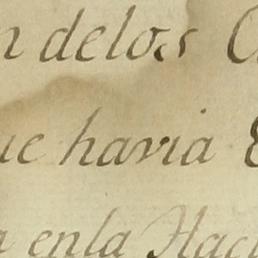 n delos C
ue havia
a enla Hac